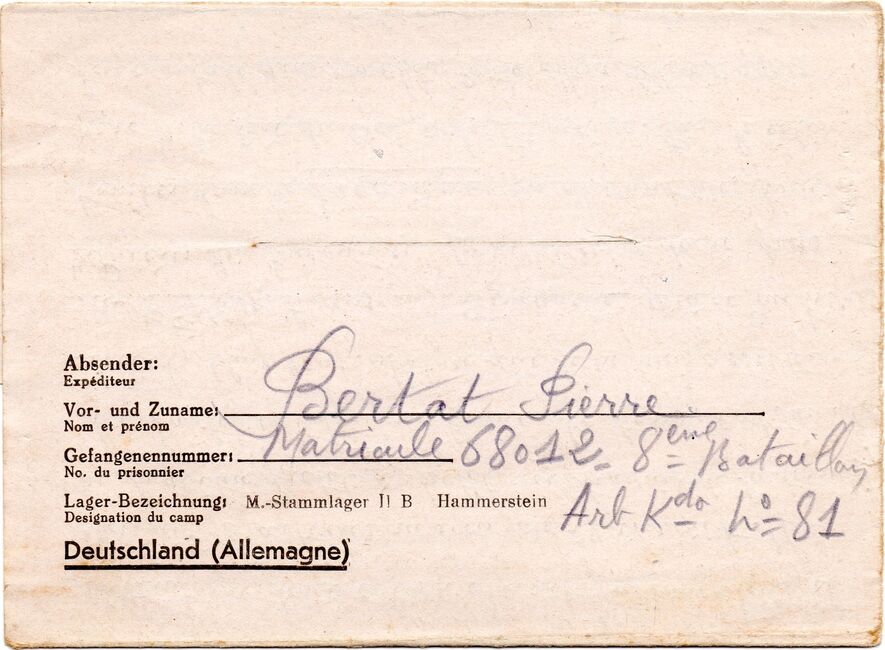 Absender:
Expéditeur
Vor- und Zuname: Bertat Pierre
Nom et prénom
Gefangenennummer: Matricule 68012 - 8ème Bataillon
No. du prisonnier
Lager-Bezeichnung: M.-Stammlager II B Hammerstein Arb Kdo No 81
Designation du camp
Deutschland (Allemagne)